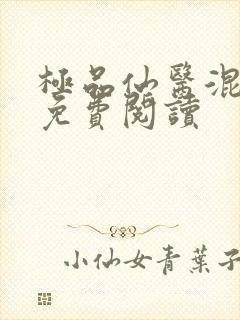 極品仙醫混
免費閱讀
小仙女青葉子